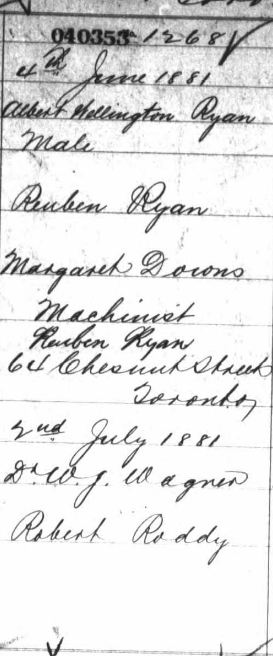 040353 1268
4th June 1881
Albert Wellington Ryan
Male
Reuben Ryan
Margaret Downs
Machinist
Reuben Ryan
64 Chesnut Street
Toronto
2nd July 1881
Dr. W. J. Wagner
Robert Roddy